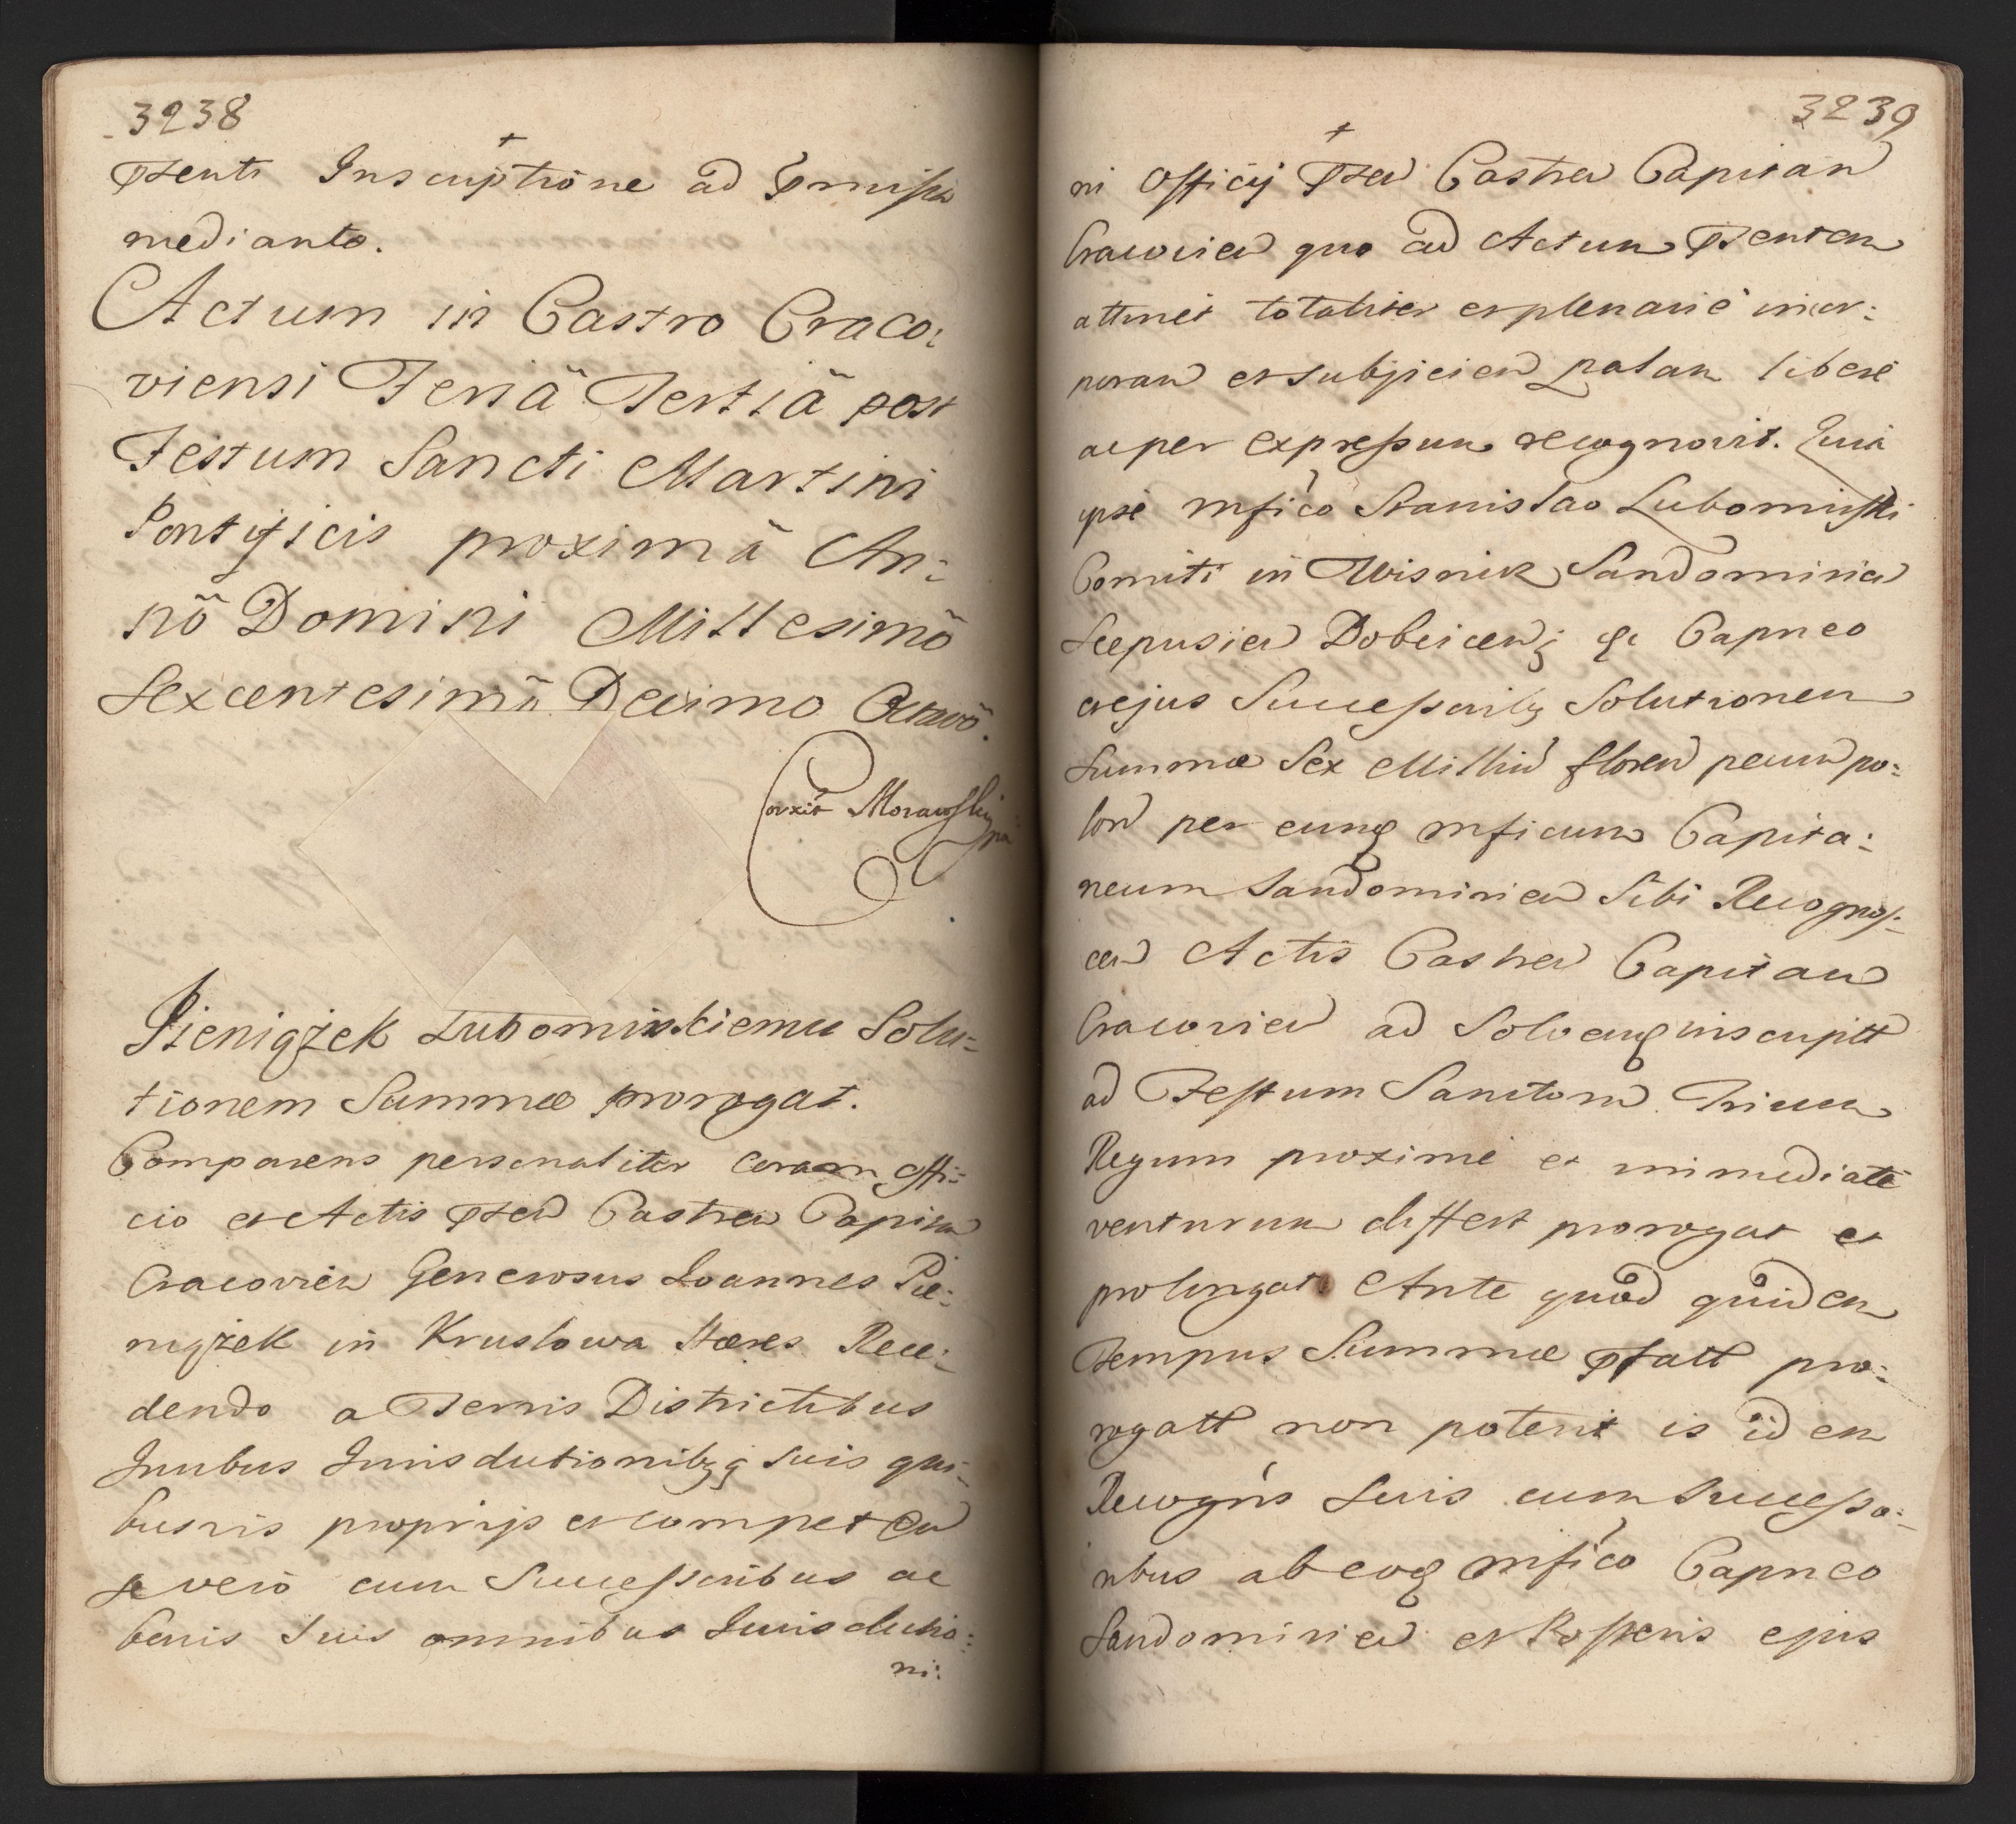 3238
Psenti Inscriptione ad Pmissa
mediante.
Actum in Castro Craco:
viensi Feriâ Tertiâ post
Festum Sancti Martini
Pontificis proximâ An:
nô Domini Millesimô
Sexcentesimô Decimo Octavô.
Corrxit Morawskip
mp
Pieniążek Lubomirskiemu Solu:
tionem Summæ prorogat.
Comparens personaliter coram offi:
cio et Actis Psen Castren Capitan
Cracovien Generosus Ioannes Pie:
niążek in Kruslowa Hæres Rece:
dendo a Terris Districtibus
Iuribus Iurisdictionibqz suis qui:
busvis proprijs et competen
se verò cum Successoribus ac
bonis suis omnibus Iurisdictio:
ni:
3239
ni Officij Psen Castren Capitan
Cracovien quo ad Actum Psentem
attinet totaliter et plenariè incor:
poran et subijcien palam liberè
ac per expressum recognovit. Quia
ipse mfico Stanislao Lubomirski
Comiti in Wisnicz Sandomirien
Scepusien Dobcicen; &c Capneo
et ejus Successoribz Solutionem
Summæ Sex Millium floren pecun po:
lon per eunq mficum Capita:
neum Sandomirien Sibi Recognos:
cen Actis Castren Capitan
Cracovien ad Solvenq inscriptt
ad Festum Sanctorum Trium
Regum proximè et immediatè
venturum differt prorogat et
prolongat. Ante quod quidem
Tempus Summæ Pfatt pro:
rogatt non poterit is idem
Recogns suis cum Successo:
ribus ab eoq mfico Capneo
Sandomirien et Posteris ejus